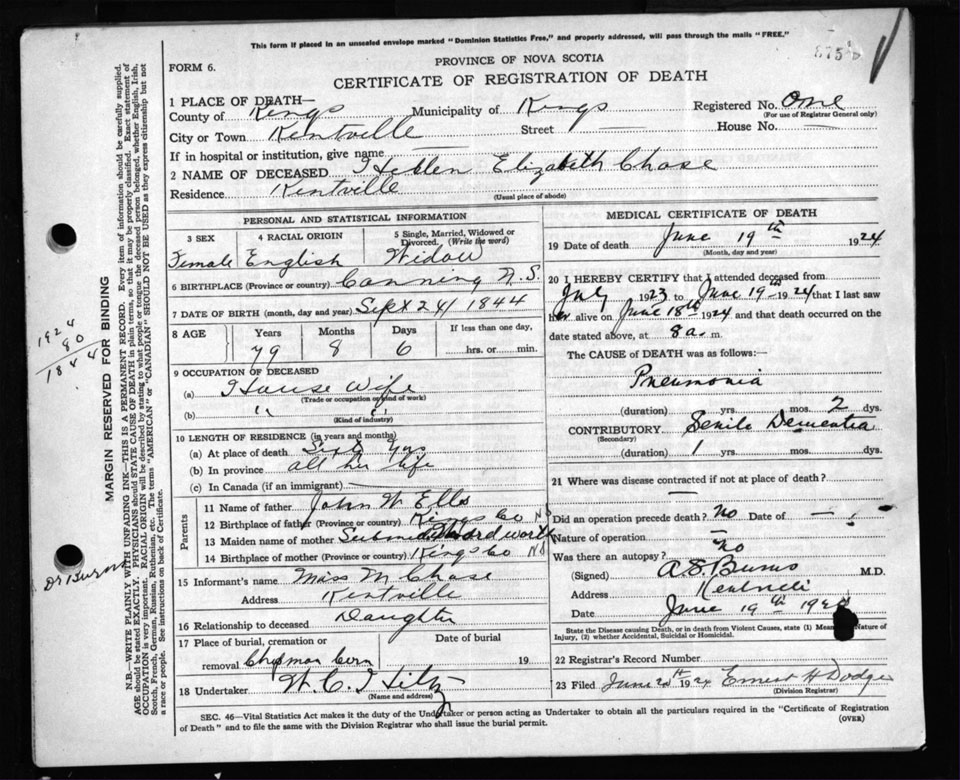 This form if placed in an unsealed envelope marked "Dominion Statistics Free," and properly addressed, will pass through the mails "FREE."
PROVINCE OF NOVA SCOTIA
FORM 6.
CERTIFICATE OF REGISTRATION OF DEATH
1 PLACE OF DEATH—
County of Kings Municipality of Kings Registered No. One
(For use of Registrar General only)
City or Town Kentville Street — House No. —
If in hospital or institution, give name —
2 NAME OF DECEASED Hellen Elizabeth Chase
Residence Kentville (Usual place of abode)
PERSONAL AND STATISTICAL INFORMATION
3 SEX 4 RACIAL ORIGIN 5 Single, Married, Widowed or Divorced. (Write the word)
Female English Widow
6 BIRTHPLACE (Province or country) Canning N.S
7 DATE OF BIRTH (month, day and year) Sept 24 / 1844
8 AGE Years Months Days If less than one day,
79 8 6 hrs. or min.
9 OCCUPATION OF DECEASED
(a) House Wife
(Trade or occupation or kind of work)
(b) " "
(Kind of industry)
10 LENGTH OF RESIDENCE (in years and months)
(a) At place of death yrs
(b) In province all her life
(c) In Canada (if an immigrant)
Parents
11 Name of father John W Ells
12 Birthplace of father (Province or country) Kings Co NS
13 Maiden name of mother
14 Birthplace of mother (Province or country) Kings Co NS
15 Informant's name Miss M Chase
Address Kentville
16 Relationship to deceased Daughter
17 Place of burial, cremation or Date of burial
removal Chipman Corn 19
18 Undertaker W. C. Hiltz
(Name and address)
MEDICAL CERTIFICATE OF DEATH
19 Date of death June 19th 1924
(Month, day and year)
20 I HEREBY CERTIFY that I attended deceased from
July 1923 to June 19th 1924 that I last saw
her alive on June 18th 1924 and that death occurred on
date stated above, at 8 a. m.
The CAUSE of DEATH was as follows:—
Pneumonia
(duration) yrs. mos. 2 dys.
CONTRIBUTORY Senile Dementia
(Secondary)
(duration) 1 yrs. mos. dys.
21 Where was disease contracted if not at place of death?
Did an operation precede death? No Date of —
Nature of operation —
Was there an autopsy? No
(Signed) A. S. Burns M.D.
Address Kentville
Date June 19th
State the Disease causing Death, or in death from Violent Causes, state (1) Means Nature of
Injury, (2) whether Accidental, Suicidal or Homicidal.
22 Registrar's Record Number
23 Filed June 20th 1924 Ernest H Dodge
(Division Registrar)
SEC. 46—Vital Statistics Act makes it the duty of the Undertaker or person acting as Undertaker to obtain all the particulars required in the "Certificate of Registration
of Death" and to file the same with the Division Registrar who shall issue the burial permit. (OVER)
MARGIN RESERVED FOR BINDING
N.B.—WRITE PLAINLY WITH UNFADING INK—THIS IS A PERMANENT RECORD. Every item of information should be carefully supplied.
AGE should be stated EXACTLY. PHYSICIANS should STATE CAUSE OF DEATH in plain terms, so that it may be properly classified. Exact statement of
OCCUPATION is very important. RACIAL ORIGIN will be described by stating to what people or tongue the deceased person belonged, whether English, Irish,
Scotch, French, German, Russian, Ruthenian, etc. The terms "AMERICAN" or "CANADIAN" SHOULD NOT BE USED as they express citizenship but not
a race or people. See instructions on back of Certificate.
1924
80
1844
Dr Burns